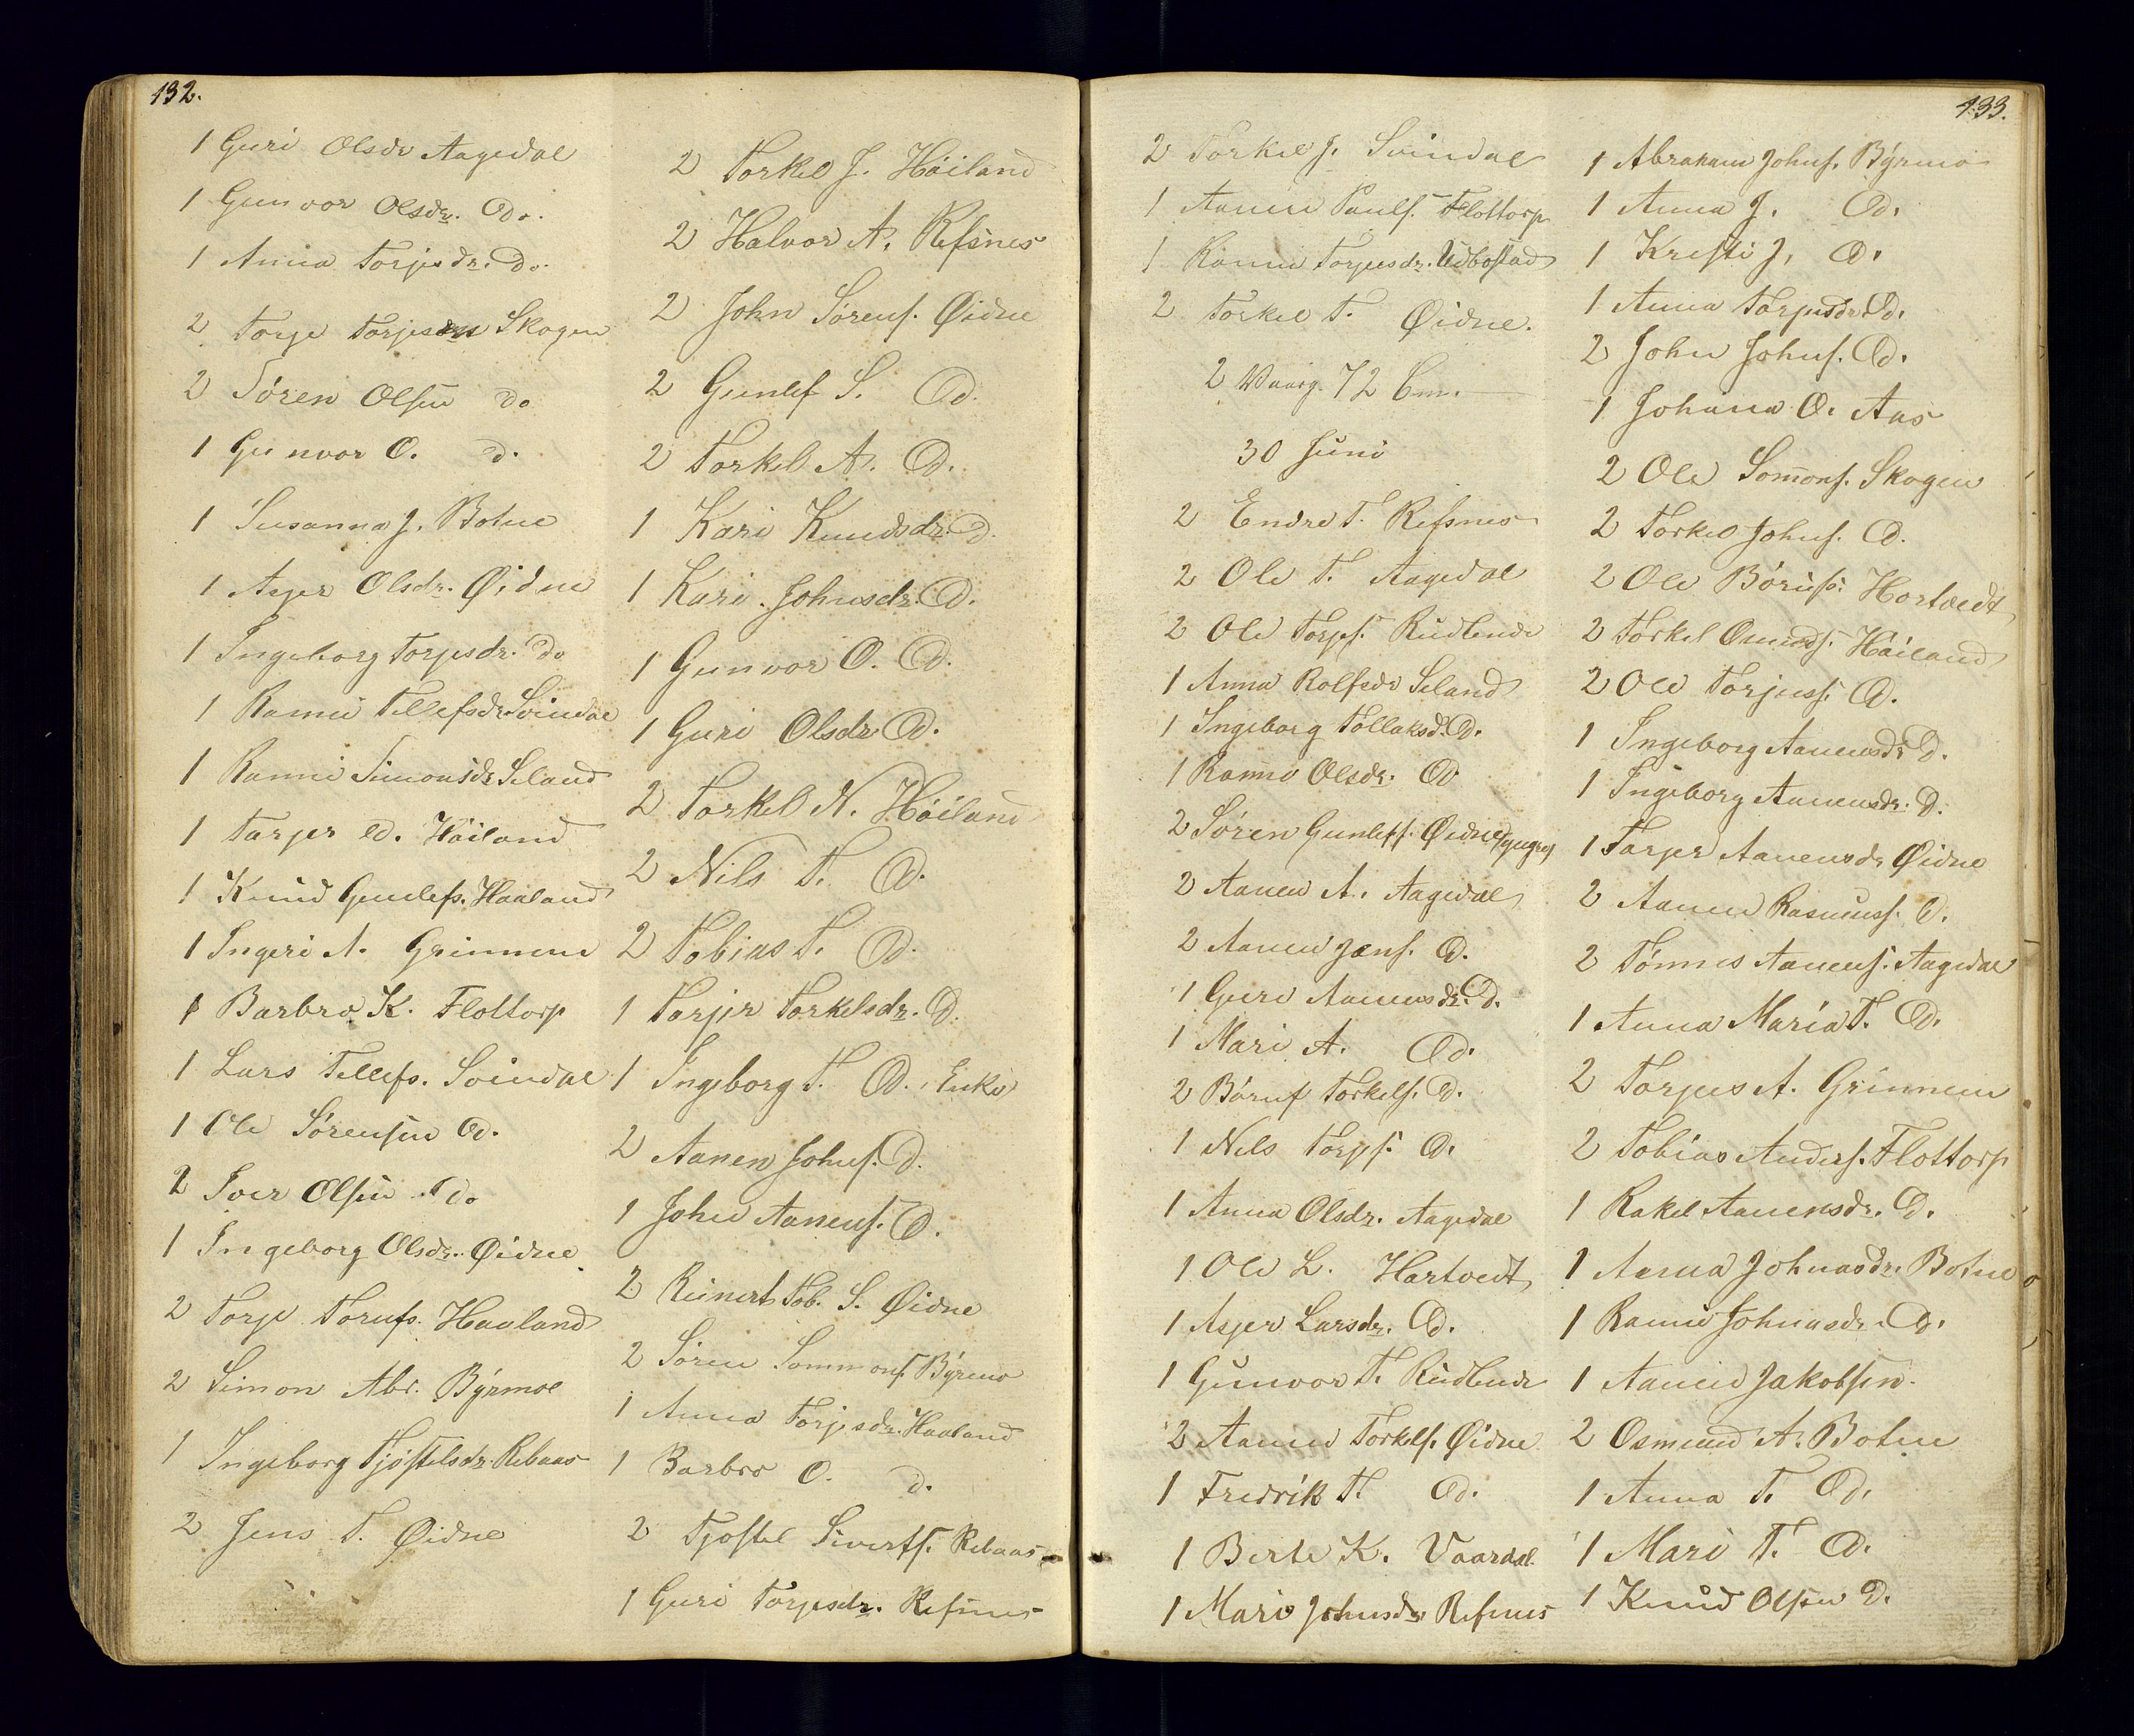 132.
1 Guri Olsdr Aagedal
1 Gunvor Olsdr. Do.
1 Anna Torjesdr. Do.
2 Torje Torjesen Skogen
2 Sören Olsen Do
1 Gunvor O. D.
1 Susanna J. Botne
1 Asjer Olsdr. Øidne
1 Ingeborg Torjesdr. Do
1 Ranni Tellefsdr Svindal
1 Ranni Simonsdr Seland
1 Tarjer Høiland
1 Knud Gunlefs. Haaland
1 Ingeri A. Grimnem
1 Barbro K. Flottorp
1 Lars Tellefs. Svindal
1 Ole Sørensen Do.
2 Iver Olsen Do
1 Ingeborg Olsdr. Øidne
2 Torje Haaland
2 Simon Abr. Býrmoe
1 Ingeborg Tjøstelsdr. Rebaas
2 Jens T. Øidne
2 Torkel J. Høiland
2 Halvor A. Refsnes
2 John Sörens. Øidne
2 Gunlef S. Do.
2 Torkel A. Do.
1 Kari Knudsdr. D.
1 Kari Johnsdr. Do.
1 Gunvor O. Do.
1 Guri Olsdr. Do.
2 Torkel N. Høiland
2 Nils T. Do.
2 Tobias T. Do.
1 Torjer Torkelsdr. D.
1 Ingeborg T. Do. Enke
2 Aanen Johns. D.
1 John Aanens. D.
2 Reinert Tob. S. Øidne
2 Søren Sommons. Býrmo
1 Anna Torjesdr. Haaland
1 Barbro O. D.
2 Tjøstel Siverts. Rebaas
1 Guri Torjesdr. Refsnes
133.
2 Torkel J. Svindal
1 Aanen Pauls. Flottorp
1 Ranni Torjusdr. Udbostad
2 Torkel T. Øidne.
2 Vaarg. 72
30 Juni
2 Endre T. Refsnes
2 Ole T. Aagedal
2 Ole Torjes. Rudlende
1 Anna Rolfsdr Seland
1 Ingeborg Tollaksd. Do.
1 Ranni Olsdr. Do
2 Søren Gunlefs. Øidne
2 Aanen A. Aagedal
2 Aanen Jens. Do.
1 Guri Aanensdr. D.
1 Mari A. Do.
2 Børuf Torkels. D.
1 Nils Torjs. D.
1 Anna Olsdr. Aagedal
1 Ole L. Hartvedt
1 Asjer Larsdr. Do.
1 Gunvor T. Rudlende
2 Aanen Torkels. Øidne
1 Fredrik T. Do.
1 Berte K. Vaardal
1 Mari Johnsdr. Refsnes
1 Abraham Johns. Býrmo
1 Anna J. Do.
1 Kristi J. D.
1 Anna Torjusdr. D.
2 John Johns. Do.
1 Johana O. Aas
2 Ole Somons. Skogen
2 Torkel Johns. D.
2 Ole Børufs. Hortvedt
2 Torkel Osmunds. Høiland
2 Ole Torjuss. D.
1 Ingeborg Aanensdr D.
1 Ingeborg Aanensdr. D.
1 Tarjer Aanensdr Øidne
2 Aanen Rasmuss. D.
2 Tønnes Aanens. Aagedal
1 Anna Maria T. D.
2 Torjus A. Grimnem
2 Tobias Anders. Flottorp
1 Rakel Aanensdr. D.
1 Anna Johnasdr. Botne
1 Ranni Johnasdr. D.
1 Aanen Jakobsen.
2 Osmund A. Botne
1 Anna T. Do.
1 Mari T. D.
1 Knud Olsen D.